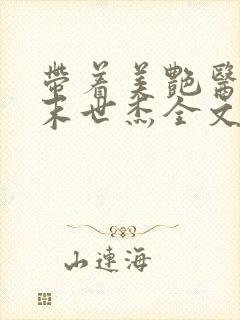 帶着美艷醫
末世杰全文
山連海